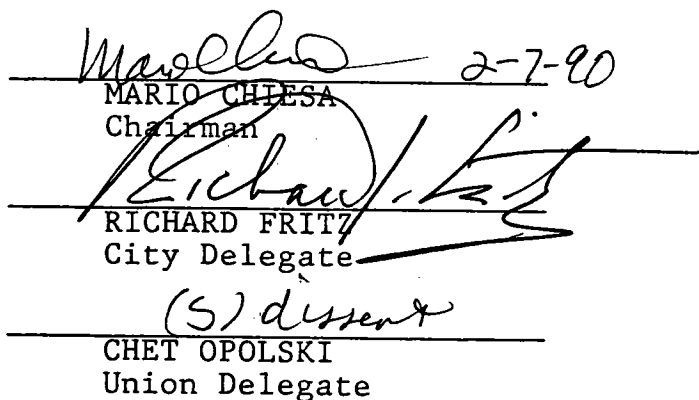 Mario Chiesa 2-7-90
MARIO CHIESA
Chairman
Richard Fritz
RICHARD FRITZ
City Delegate
(S) dissent
CHET OPOLSKI
Union Delegate